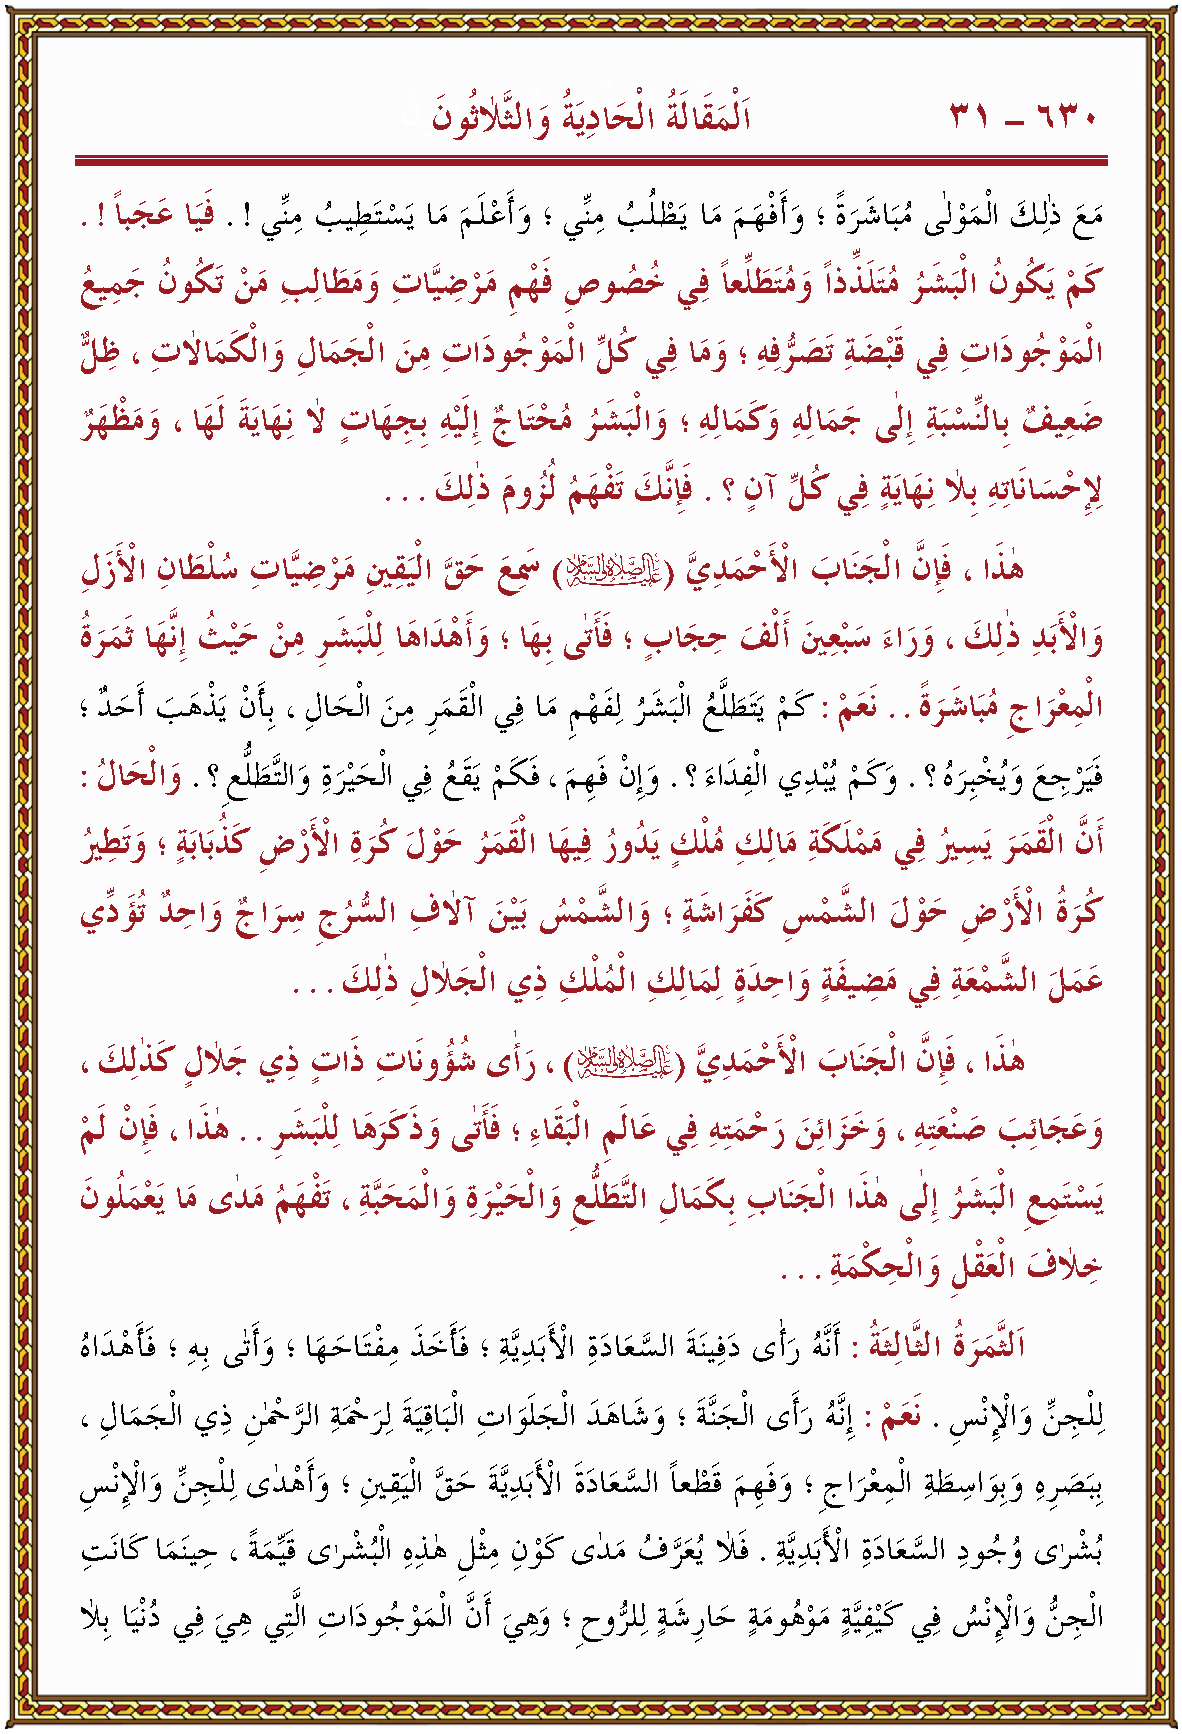 ٦٣٠ – ٣١ اَلْمَقَالَةُ الْحَادِيَةُ وَالثَّلاٰثُونَ
مَعَ ذٰلِكَ الْمَوْلٰى مُبَاشَرَةً ؛ وَأَفْهَمَ مَا يَطْلُبُ مِنِّي ؛ وَأَعْلَمَ مَا يَسْتَطِيبُ مِنِّي ! . فَيَا عَجَباً ! .
كَمْ يَكُونُ الْبَشَرُ مُتَلَذِّذاً وَمُتَطَلِّعاً فِي خُصُوصِ فَهْمِ مَرْضِيَّاتِ وَمَطَالِبِ مَنْ تَكُونُ جَمِيعُ
الْمَوْجُودَاتِ فِي قَبْضَةِ تَصَرُّفِهِ ؛ وَمَا فِي كُلِّ الْمَوْجُودَاتِ مِنَ الْجَمَالِ وَالْكَمَالاٰتِ ، ظِلٌّ
ضَعِيفٌ بِالنِّسْبَةِ إِلٰى جَمَالِهِ وَكَمَالِهِ ؛ وَالْبَشَرُ مُحْتَاجٌ إِلَيْهِ بِجِهَاتٍ لاٰ نِهَايَةَ لَهَا ، وَمَظْهَرٌ
لِإِحْسَانَاتِهِ بِلاٰ نِهَايَةٍ فِي كُلِّ آنٍ ؟ . فَإِنَّكَ تَفْهَمُ لُزُومَ ذٰلِكَ . . .
هٰذَا ، فَإِنَّ الْجَنَابَ الْأَحْمَدِيَّ (عليه الصلاة والسلام) سَمِعَ حَقَّ الْيَقِينِ مَرْضِيَّاتِ سُلْطَانِ الْأَزَلِ
وَالْأَبَدِ ذٰلِكَ ، وَرَاءَ سَبْعِينَ أَلْفَ حِجَابٍ ؛ فَأَتٰى بِهَا ؛ وَأَهْدَاهَا لِلْبَشَرِ مِنْ حَيْثُ إِنَّهَا ثَمَرَةُ
الْمِعْرَاجِ مُبَاشَرَةً . . نَعَمْ : كَمْ يَتَطَلَّعُ الْبَشَرُ لِفَهْمِ مَا فِي الْقَمَرِ مِنَ الْحَالِ ، بِأَنْ يَذْهَبَ أَحَدٌ ؛
فَيَرْجِعَ وَيُخْبِرَهُ ؟ . وَكَمْ يُبْدِي الْفِدَاءَ ؟ . وَإِنْ فَهِمَ ، فَكَمْ يَقَعُ فِي الْحَيْرَةِ وَالتَّطَلُّعِ ؟ . وَالْحَالُ :
أَنَّ الْقَمَرَ يَسِيرُ فِي مَمْلَكَةِ مَالِكِ مُلْكٍ يَدُورُ فِيهَا الْقَمَرُ حَوْلَ كُرَةِ الْأَرْضِ كَذُبَابَةٍ ؛ وَتَطِيرُ
كُرَةُ الْأَرْضِ حَوْلَ الشَّمْسِ كَفَرَاشَةٍ ؛ وَالشَّمْسُ بَيْنَ آلاٰفِ السُّرُجِ سِرَاجٌ وَاحِدٌ تُؤَدِّي
عَمَلَ الشَّمْعَةِ فِي مَضِيفَةٍ وَاحِدَةٍ لِمَالِكِ الْمُلْكِ ذِي الْجَلاٰلِ ذٰلِكَ . . .
هٰذَا ، فَإِنَّ الْجَنَابَ الْأَحْمَدِيَّ (عليه الصلاة والسلام) ، رَأٰى شُؤُونَاتِ ذَاتٍ ذِي جَلاٰلٍ كَذٰلِكَ ،
وَعَجَائِبَ صَنْعَتِهِ ، وَخَزَائِنَ رَحْمَتِهِ فِي عَالَمِ الْبَقَاءِ ؛ فَأَتٰى وَذَكَرَهَا لِلْبَشَرِ . . هٰذَا ، فَإِنْ لَمْ
يَسْتَمِعِ الْبَشَرُ إِلٰى هٰذَا الْجَنَابِ بِكَمَالِ التَّطَلُّعِ وَالْحَيْرَةِ وَالْمَحَبَّةِ ، تَفْهَمُ مَدٰى مَا يَعْمَلُونَ
خِلاٰفَ الْعَقْلِ وَالْحِكْمَةِ . . .
اَلثَّمَرَةُ الثَّالِثَةُ : أَنَّهُ رَأٰى دَفِينَةَ السَّعَادَةِ الْأَبَدِيَّةِ ؛ فَأَخَذَ مِفْتَاحَهَا ؛ وَأَتٰى بِهِ ؛ فَأَهْدَاهُ
لِلْجِنِّ وَالْإِنْسِ . نَعَمْ : إِنَّهُ رَأَى الْجَنَّةَ ؛ وَشَاهَدَ الْجَلَوَاتِ الْبَاقِيَةَ لِرَحْمَةِ الرَّحْمٰنِ ذِي الْجَمَالِ ،
بِبَصَرِهِ وَبِوَاسِطَةِ الْمِعْرَاجِ ؛ وَفَهِمَ قَطْعاً السَّعَادَةَ الْأَبَدِيَّةَ حَقَّ الْيَقِينِ ؛ وَأَهْدٰى لِلْجِنِّ وَالْإِنْسِ
بُشْرٰى وُجُودِ السَّعَادَةِ الْأَبَدِيَّةِ . فَلاٰ يُعَرَّفُ مَدٰى كَوْنِ مِثْلِ هٰذِهِ الْبُشْرٰى قَيِّمَةً ، حِينَمَا كَانَتِ
الْجِنُّ وَالْإِنْسُ فِي كَيْفِيَّةٍ مَوْهُومَةٍ حَارِشَةٍ لِلرُّوحِ ؛ وَهِيَ أَنَّ الْمَوْجُودَاتِ الَّتِي هِيَ فِي دُنْيَا بِلاٰ